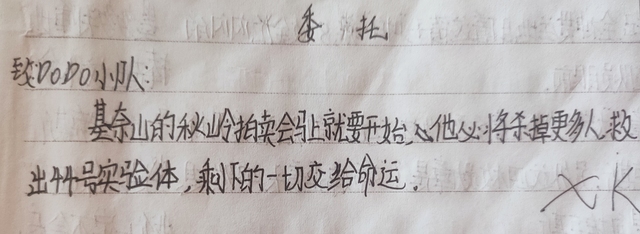 委托
致DODO小队:
基奈山的秋山岭拍卖会马上就要开始,他必将杀掉更多人.救
出44号实验体,剩下的一切交给命运.
X.K